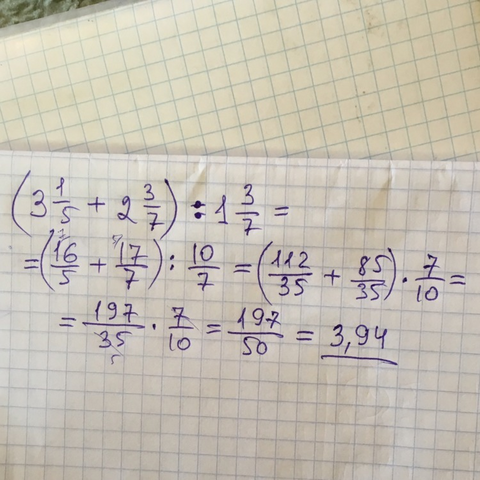 (3 1/5 + 2 3/7) : 1 3/7 =
= (16/5 + 17/7) : 10/7 = (112/35 + 85/35) · 7/10 =
= 197/35 · 7/10 = 197/50 = 3,94